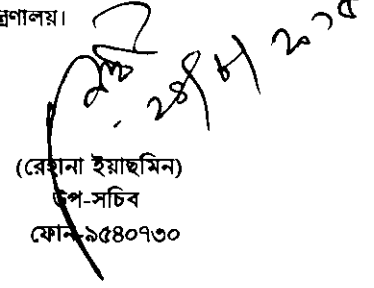 ন্ত্রণালয়।
(রেহানা ইয়াছমিন)
উপ-সচিব
ফোন-৯৫৪০৭৩০